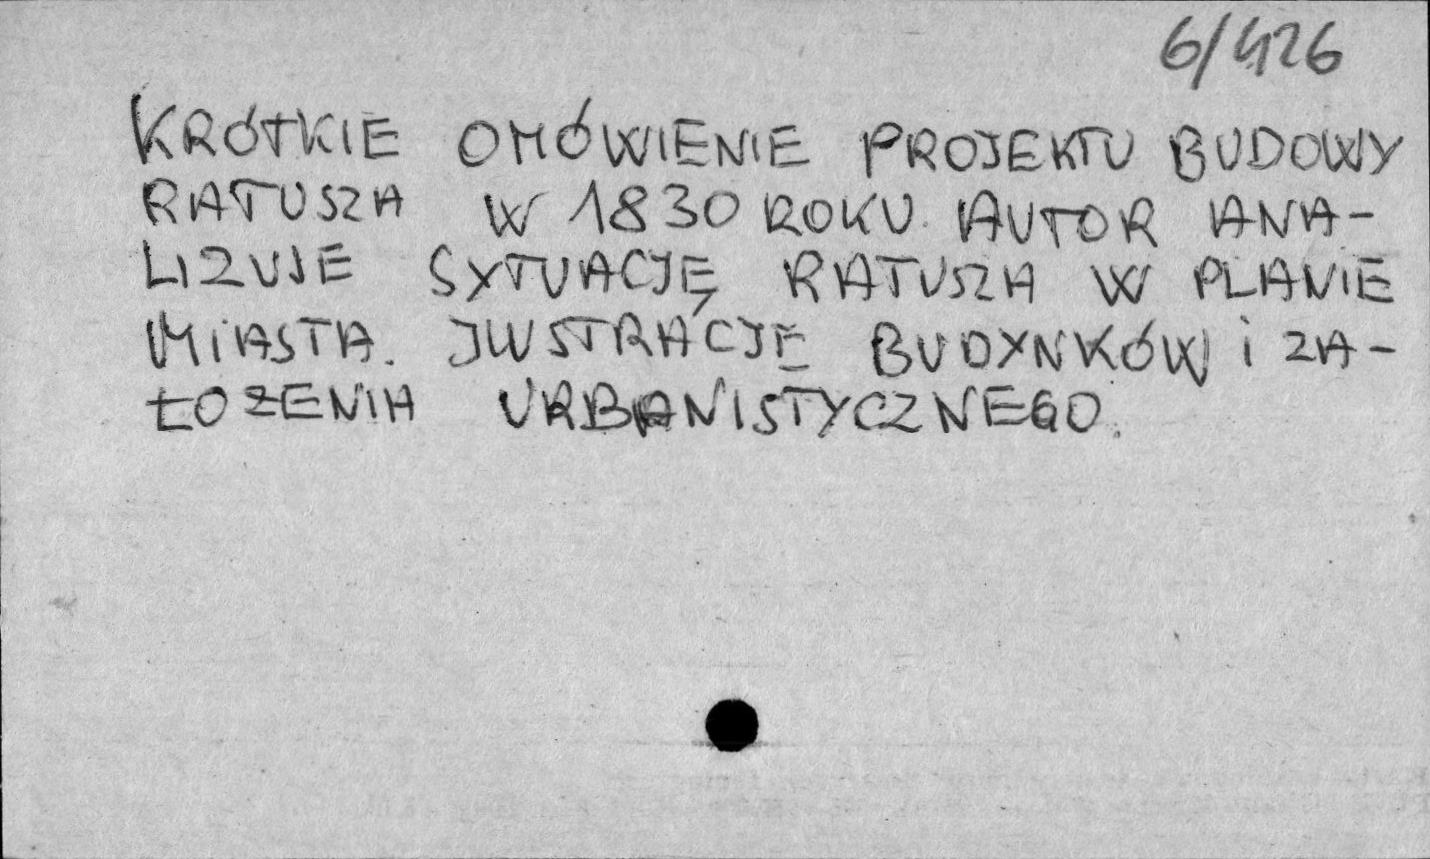 6/426
KRÓTKIE OMÓWIENIE PROJEKTU BUDOWY
RATUSZA W 1830 ROKU. AUTOR ANA-
LIZUJE SYTUACJĘ RATUSZA W PLANIE
MIASTA. ILUSTRACJE BUDYNKÓW i ZA-
ŁOŻENIA URBANISTYCZNEGO.